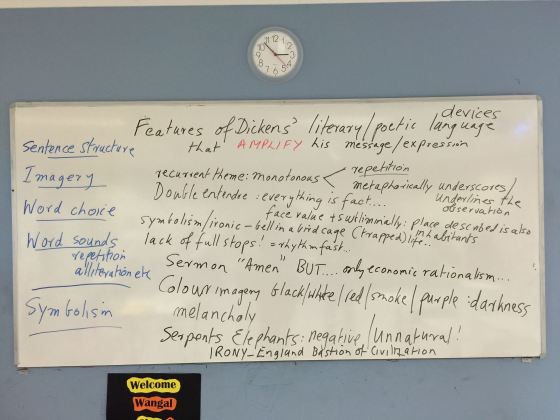 Features of Dickens' literary/poetic devices
language
that AMPLIFY his message/expression
Sentence structure
Imagery
Word choice
Word sounds
repetition
alliteration etc
Symbolism
recurrent theme: monotonous < repetition
metaphorically underscores/
underlines the
observation
Double entendre: everything is fact....
face value + subliminally: place described is also
inhabitants
symbolism/ironic - bell in a bird cage (trapped) life..
lack of full stops! = rhythm fast..
Sermon "Amen" BUT.... only economic rationalism...
Colour imagery black/white/red/smoke/purple: darkness
melancholy
Serpents Elephants: negative/Unnatural!
IRONY - England Bastion of Civilization
Welcome
Wangal